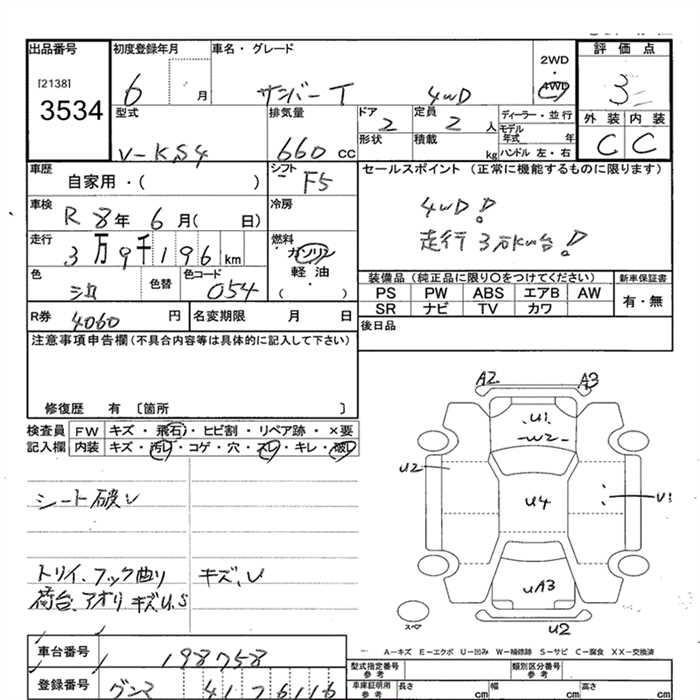 出品番号 初度登録年月 車名・グレード 2WD ・ 4WD 評価点
[2138] 3534 6 月 サンバー T 4WD 3
型式 V-KS4 排気量 660 CC ドア 2 定員 2 人 ディーラー・並行 外装 内装
形状 積載 kg モデル年式 年 ハンドル 左・右 C C
車歴 自家用・( ) シフト F5 セールスポイント (正常に機能するものに限ります)
車検 R 8年 6月( 日) 冷房 4WD!
走行 3万9千196 km 燃料 ガソリン 軽油 ( ・ ) 走行3万km台!
色 シロ 色替 色コード 054 装備品 (純正品に限り○をつけてください) 新車保証書
PS PW ABS エアB AW 有・無
SR ナビ TV カワ
R券 4060 円 名変期限 月 日 後日品
注意事項申告欄(不具合内容等は具体的に記入して下さい)
修復歴 有 〔箇所 〕
検査員記入欄 FW キズ・飛石・ヒビ割・リペア跡・×要
内装 キズ・汚レ・コゲ・穴・スレ・キレ・破レ
シート破レ
トリイ、フック曲り キズ、U
荷台、アオリ キズU,S
A2 A3
U1
W2
U2 U4
UA3
スペア U2
A－キズ E－エクボ U－凹み W－補修跡 S－サビ C－腐食 XX－交換済
車台番号 198758 型式指定番号 参考 類別区分番号 参考
登録番号 グンマ 41 76116 車庫証明用 参考 長さ cm 幅 cm 高さ cm